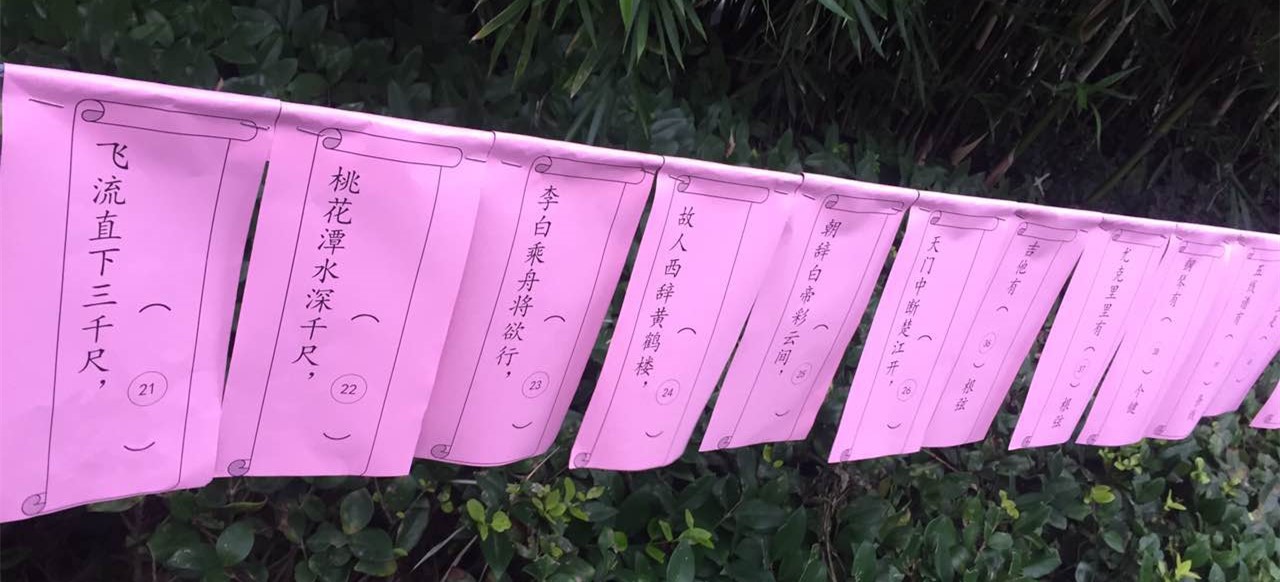 飞流直下三千尺，
（21）
桃花潭水深千尺，
（22）
李白乘舟将欲行，
（23）
故人西辞黄鹤楼，
（24）
朝辞白帝彩云间，
（25）
天门中断楚江开，
（26）
吉他有（36）根弦
尤克里里有（37）根弦
钢琴有（38）个键
五线谱有（）条线